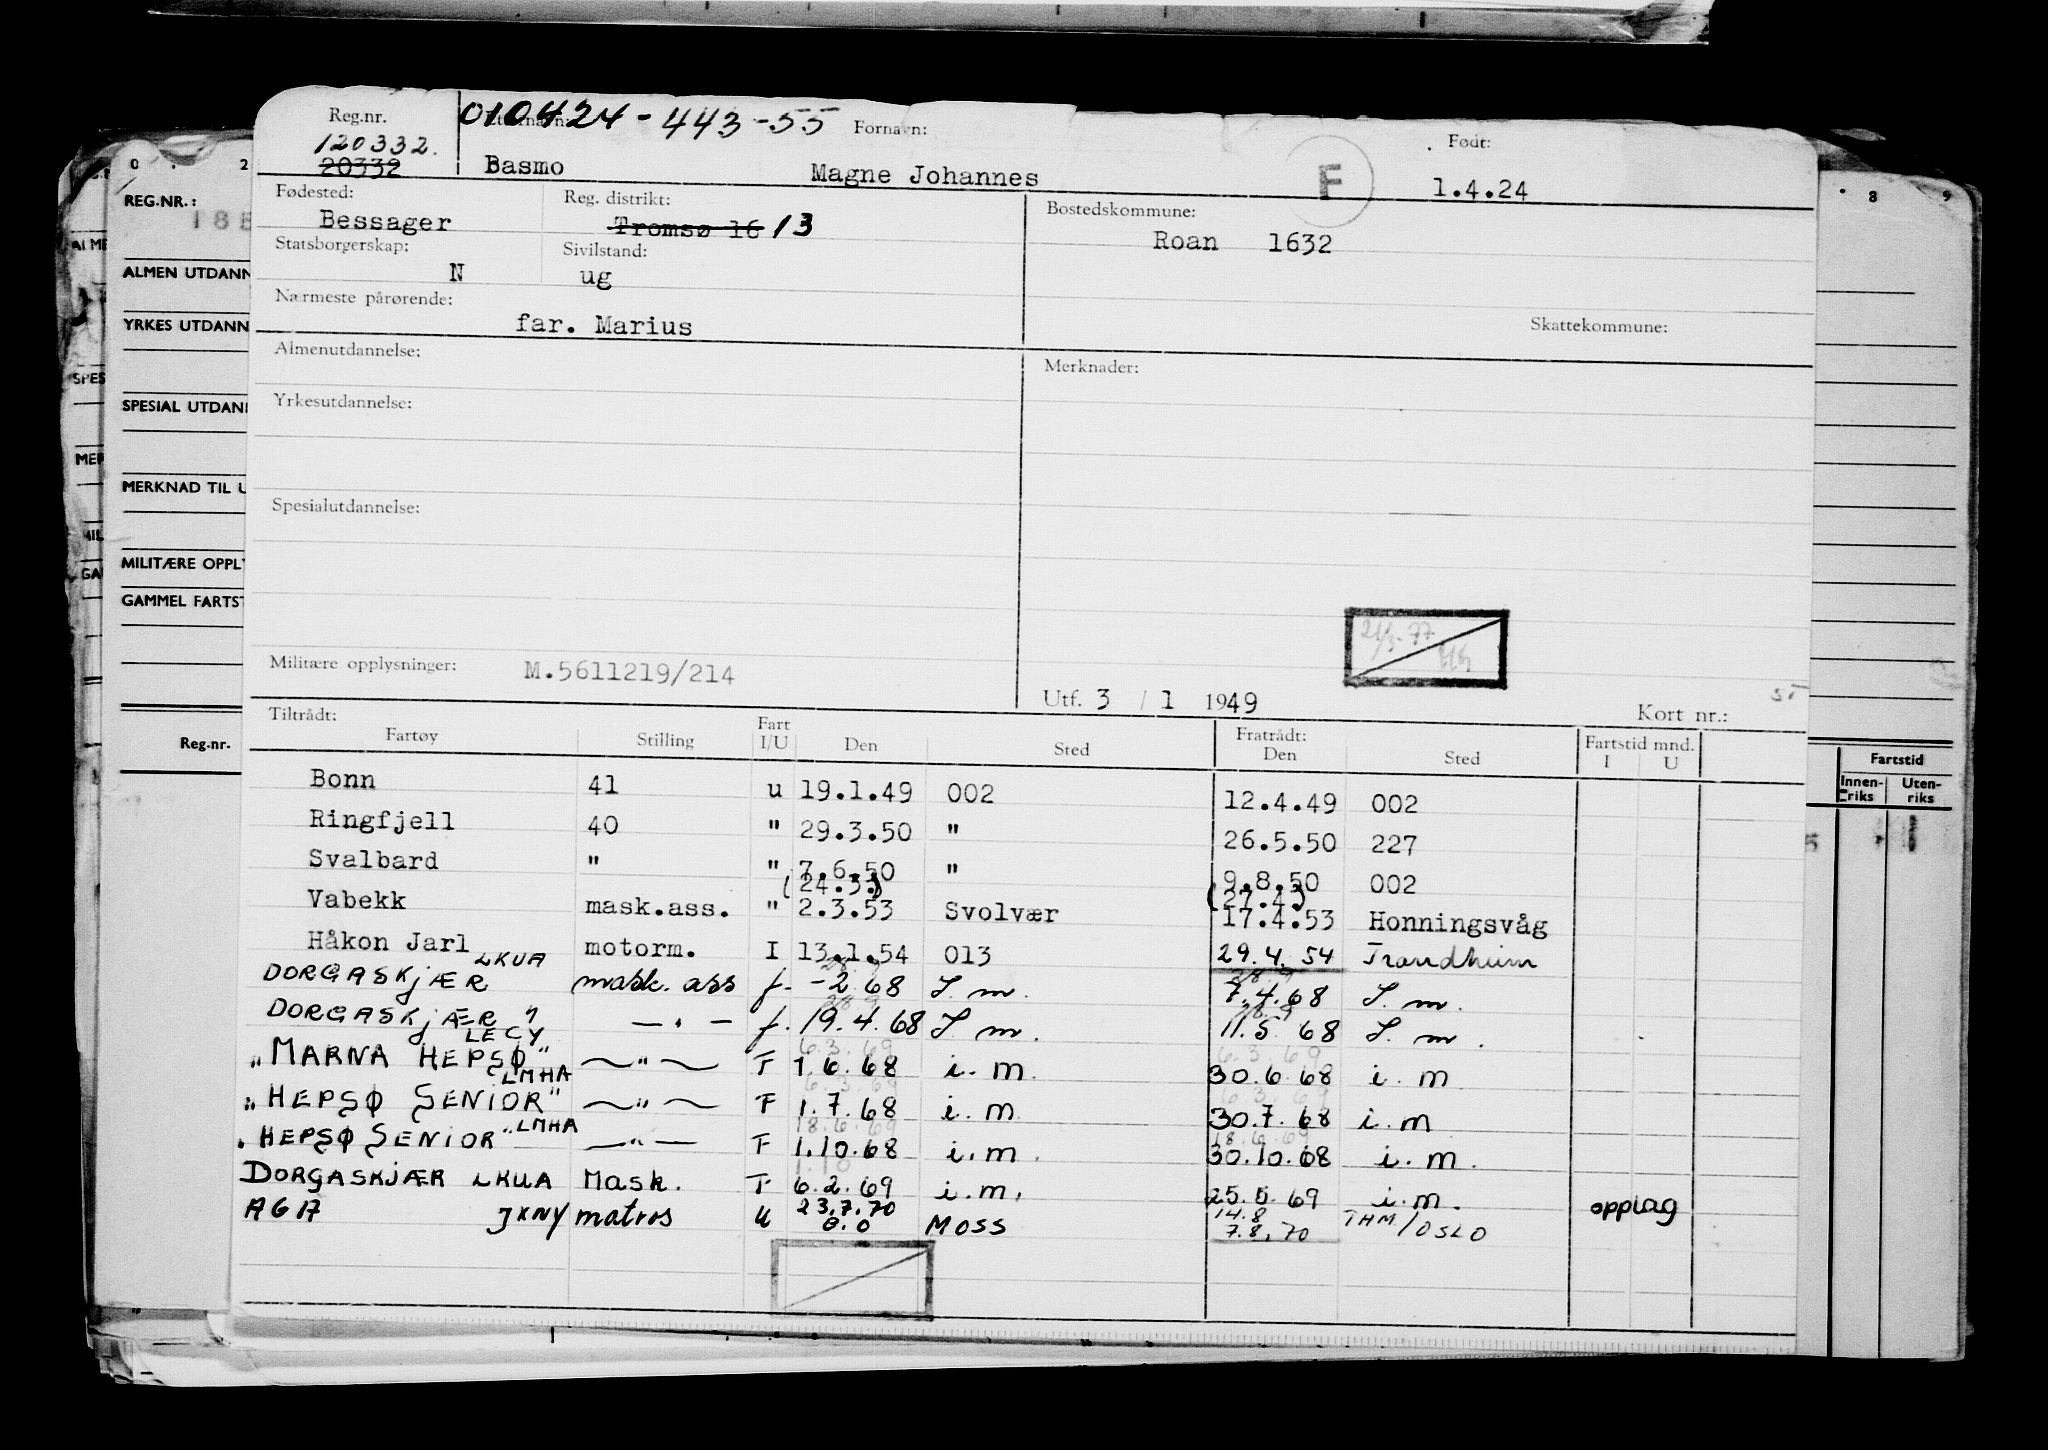 Reg.nr. 010424-443-55 Fornavn: Født:
120332.
20332 Basmo Magne Johannes F 1.4.24
Fødested: Reg. distrikt: Bostedskommune:
Bessager Tromsø 16 13 Roan 1632
Statsborgerskap: Sivilstand:
N ug
Nærmeste pårørende:
far. Marius Skattekommune:
Almenutdannelse: Merknader:
Yrkesutdannelse:
Spesialutdannelse:
21/3-77
Militære opplysninger: M.5611219/214
Utf. 3 / 1 1949 Kort nr.:
Tiltrådt: Fart Fratrådt: Fartstid mnd.
Fartøy Stilling I/U Den Sted Den Sted I U
Bonn 41 u 19.1.49 002 12.4.49 002
Ringfjell 40 " 29.3.50 " 26.5.50 227
Svalbard " " 7.6.50 " 9.8.50 002
(24.3.) (27.4.)
Vabekk mask.ass. " 2.3.53 Svolvær 17.4.53 Honningsvåg
Håkon Jarl motorm. I 13.1.54 013 29.4.54 Trondheim
LKUA 28.9 28.9
DORGASKJÆR mask. ass f. -2.68 S.m. 7.4.68 S.m.
28.9 28.9
DORGASKJÆR " — " — f. 19.4.68 S.m. 11.5.68 S.m.
LECY 6.3.69 6.3.69
"MARNA HEPSØ" — " — F 1.6.68 i.m. 30.6.68 i.m
LMHA 6.3.69 6.3.69
"HEPSØ SENIOR" — " — F 1.7.68 i.m 30.7.68 i.m
LMHA 18.6.69 18.6.69
"HEPSØ SENIOR" — " — F 1.10.68 i.m. 30.10.68 i.m.
1.10
DORGASKJÆR LKUA Mask. F 6.2.69 i.m. 25.5.69 i.m. opplag
23.7.70 14.8
AG17 JXNY matros U 0.0 MOSS 7.8.70 THM/OSLO
REG.NR.:
ALMEN UTDANN
YRKES UTDANN
SPESIAL UTDANN
MERKNAD TIL U
MILITÆRE OPPLY
GAMMEL FARTST
Reg.nr.
8 9
Fartstid
Innen-riks Uten-riks